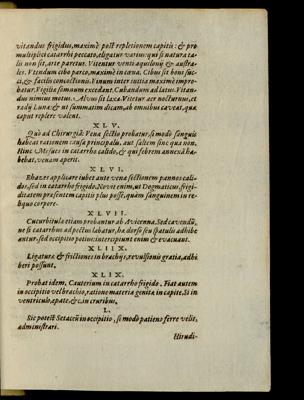 vitandus frigidus, maximè post repletionem capitis: & pro
multiplici catarrhi peccato, eligatur varius: qui si natura ta
lis non sit, arte paretur. Vitentur venti aquilonij & austra-
les. Vtendum cibo parco, maximè in cæna. Cibus sit boni suc-
ci, & facilis concoctionis. Vinum inter initia maximè impro-
batur. Vigiliæ somnum excedant. Cubandum ad latus. Vitan-
dus nimius motus. Aluus sit laxa. Vitetur aer nocturnus, et
radij Lunæ: & ut summatim dicam, ab omnibus caveat, quæ
caput replere valent.
XLV.
Quò ad Chirurgiã: Vena sectio probatur, si modò sanguis
habeat rationem causæ principalis, aut saltem sine qua non.
Hinc Mesues in catarrho calido, & qui febrem annexã ha-
bebat, venam aperit.
XLVI.
Rhazes applicare iubet ante vena sectionem pannos cali-
dos, sed in catarrho frigido. Novit enim, ut Dogmaticus, frigi-
ditatem præsentem capitis plus posse, quàm sanguinem in re-
liquo corpore.
XLVII.
Cucurbitulæ etiam probantur ab Avicenna. Sed cavendũ,
ne si catarrhus ad pectus labatur, hæ dorso seu spatulis adhibe
antur, sed occipitio potius: intercipiunt enim & evacuant.
XLIIX.
Ligaturæ & frictiones in brachijs, revulsionis gratia, adhi
beri possunt.
XLIX.
Probat idem, Cauterium in catarrho frigido. Fiat autem
in occipitio vel brachio, ratione materiæ genitæ in capite. Si in
ventriculo, apate, &c. in cruribus.
L.
Sic potest Setaceũ in occipitio, si modò patiens ferre velit,
administrari.
Hirudi-